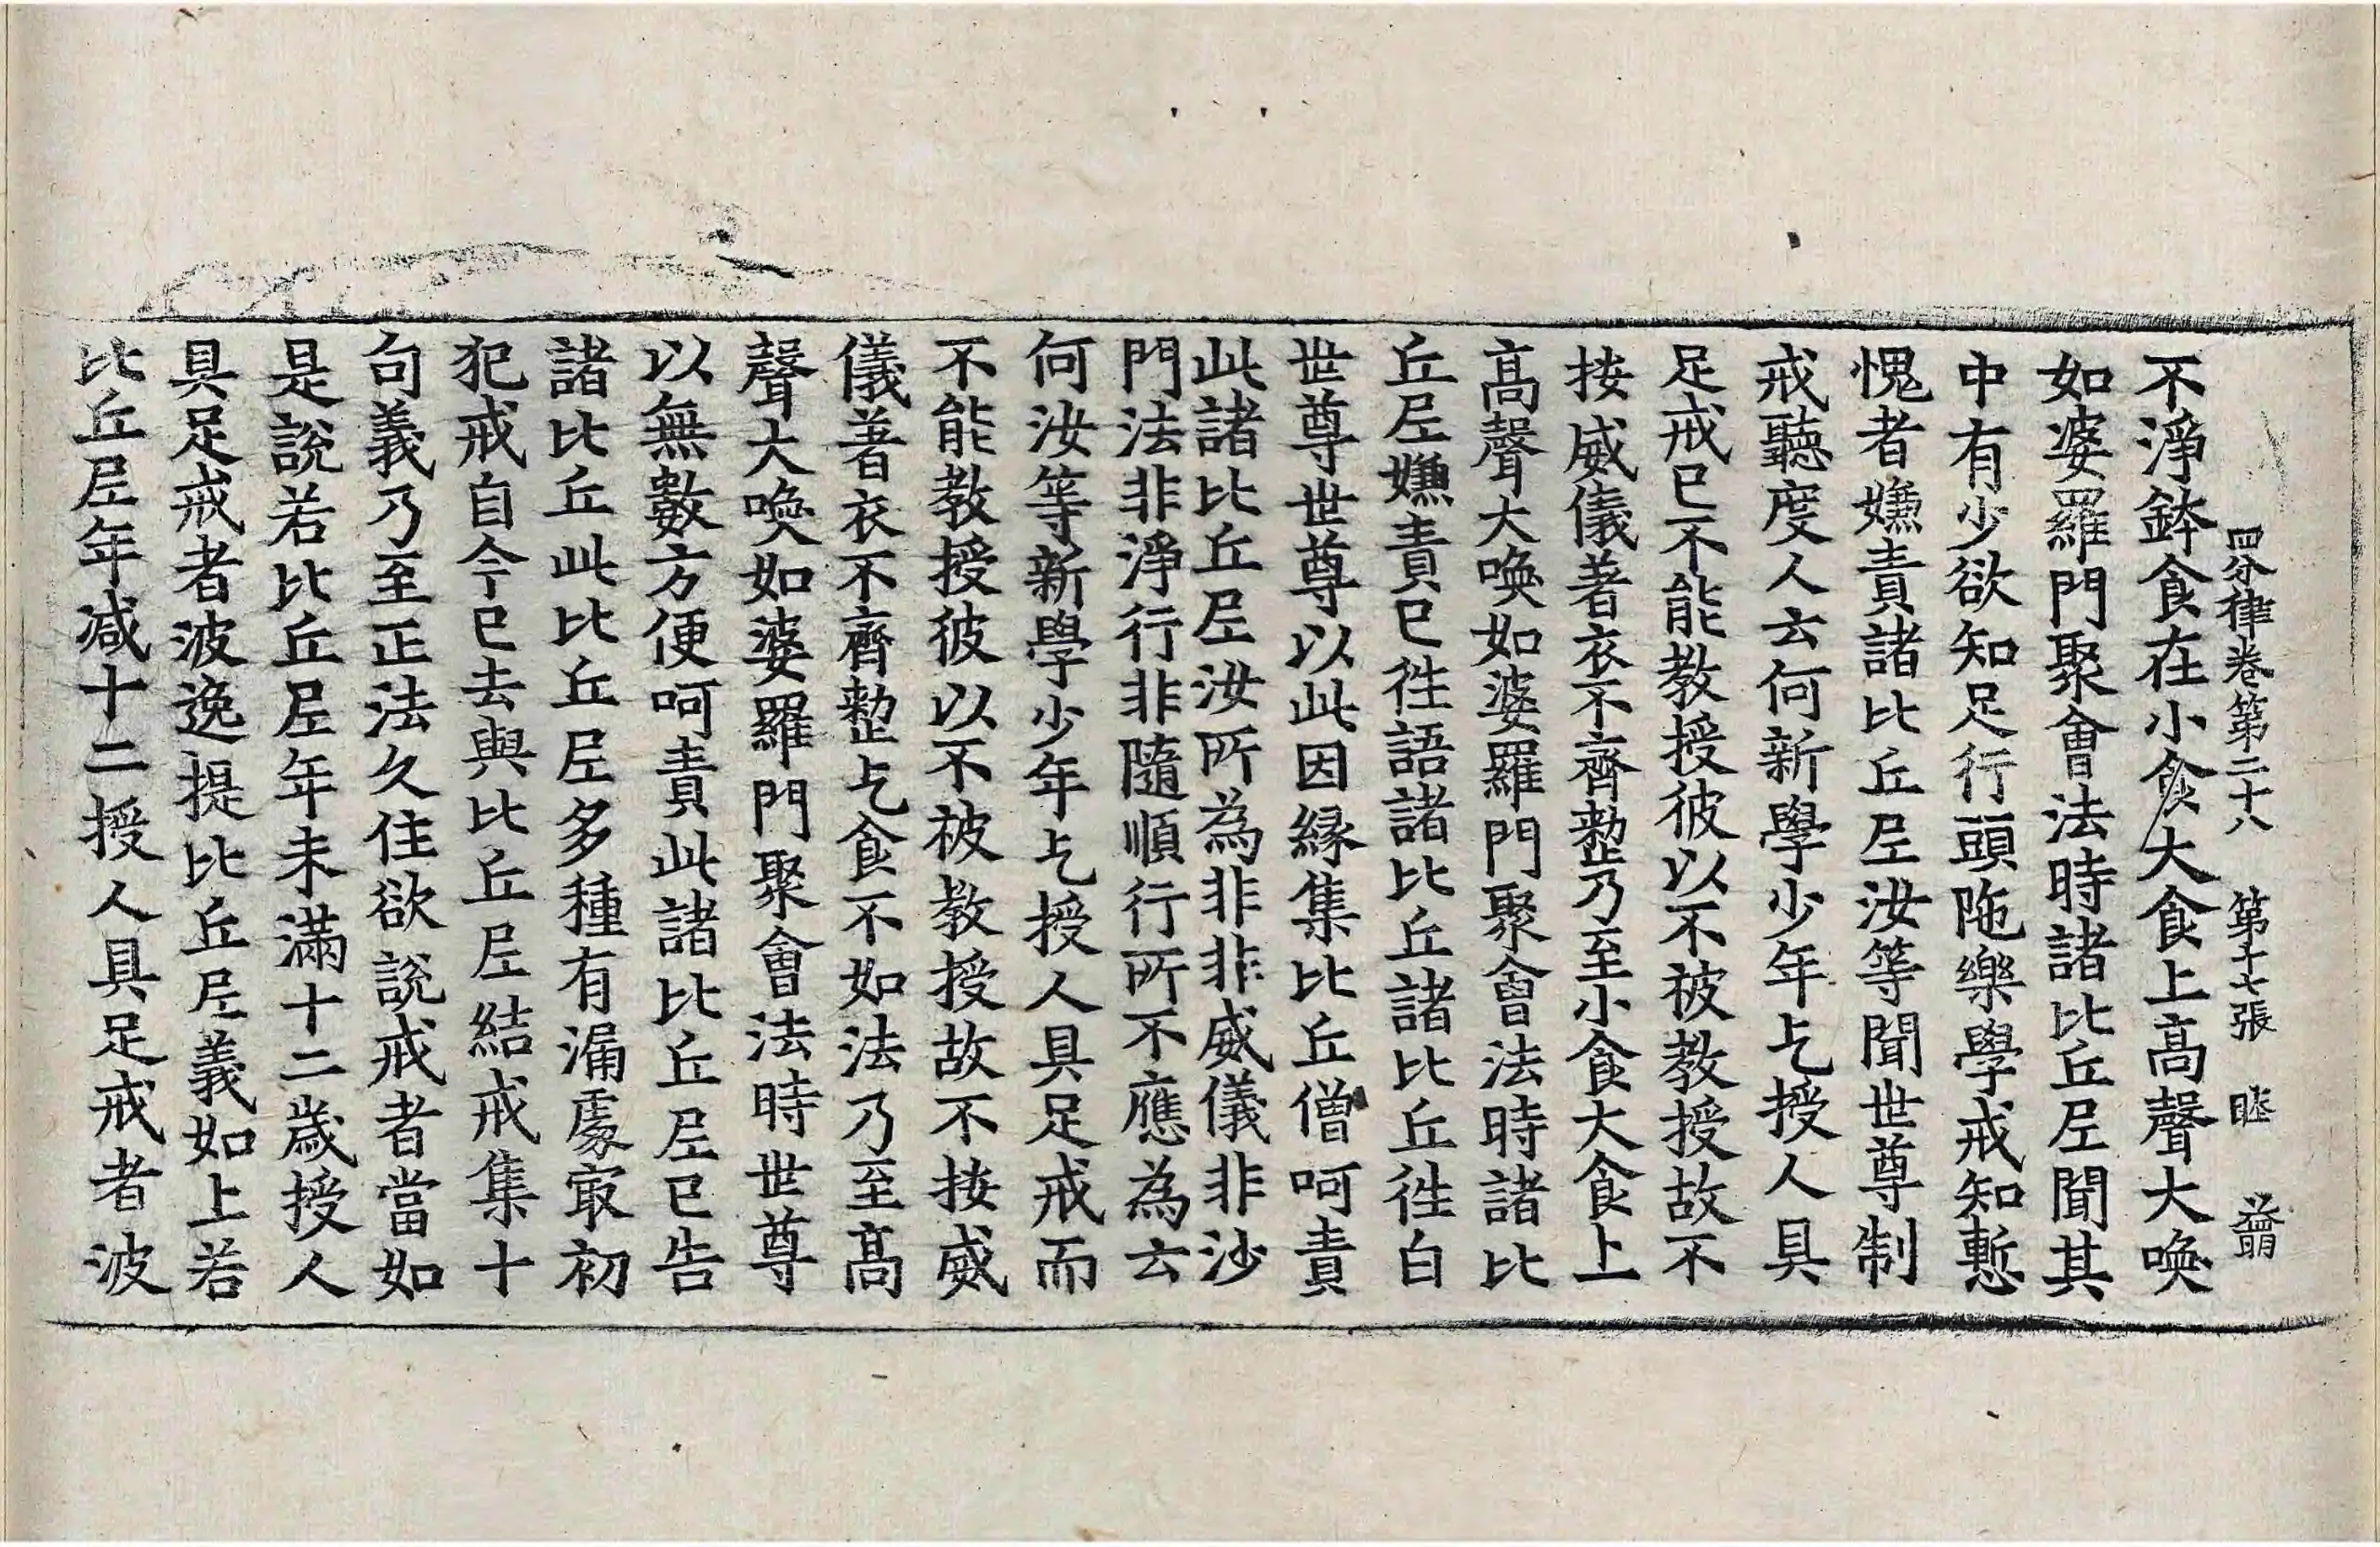 四分律卷第二十八 第十七張 睦
不淨鉢食在小食大食上高聲大喚
如婆羅門聚會法時諸比丘尼聞其
中有少欲知足行頭陁樂學戒知慙
愧者嫌責諸比丘尼汝等聞世尊制
戒聽度人云何新學少年乞授人具
足戒已不能教授彼以不被教授故不
按威儀著衣不齊整乃至小食大食上
高聲大喚如婆羅門聚會法時諸比
丘尼嫌責已徃語諸比丘諸比丘徃白
世尊世尊以此因縁集比丘僧呵責
此諸比丘尼汝所為非非威儀非沙
門法非淨行非隨順行所不應為云
何汝等新學少年乞授人具足戒而
不能教授彼以不被教授故不按威
儀著衣不齊整乞食不如法乃至高
聲大喚如婆羅門聚會法時世尊
以無數方便呵責此諸比丘尼已告
諸比丘此比丘尼多種有漏處㝡初
犯戒自今已去與比丘尼結戒集十
句義乃至正法久住欲說戒者當如
是說若比丘尼年未滿十二歲授人
具足戒者波逸提比丘尼義如上若
比丘尼年減十二授人具足戒者波